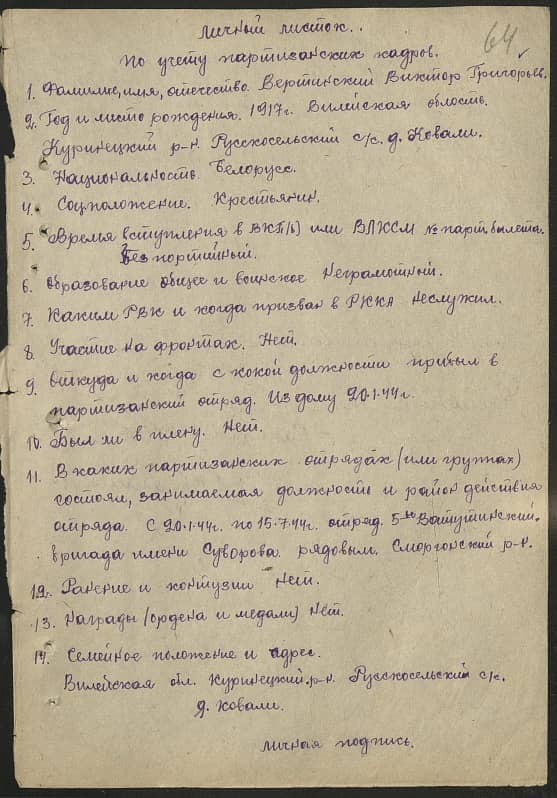 Личный листок..
64
по учету партизанских кадров.
1. Фамилие, имя, отечество. Вертинский Виктор Григорьев.
2. Год и место рождения. 1917г. Вилейская область.
Куринецкий р-н. Русскосельский с/с. д. Ковали.
3. Национальность. Белорусс.
4. Соц.положение. Крестьянин.
5. Время вступления в ВКП/б) или ВЛКСМ № парт.билета.
Без партийный.
6. Образование общее и воинское Неграмотный.
7. Каким РВК и когда призван в РККА неслужил.
8. Участие на фронтах. Нет.
9. Откуда и когда с какой должности прибыл в
партизанский отряд. Из дому 20.1.44г.
10. Был ли в плену. Нет.
11. В каких партизанских отрядах (или группах)
состоял, занимаемая должность и район действия
отряда. С 20.1.44г. по 15.7.44г. отряд. 5-й Ватутинский.
бригада имени Суворова. рядовым. Сморгонский р-н.
12. Ранение и контузии Нет.
13. Награды /ордена и медали) Нет.
14. Семейное положение и адрес.
Вилейская обл. Куринецкий.р-н. Русскосельский с/с.
д. Ковали.
личная подпись.